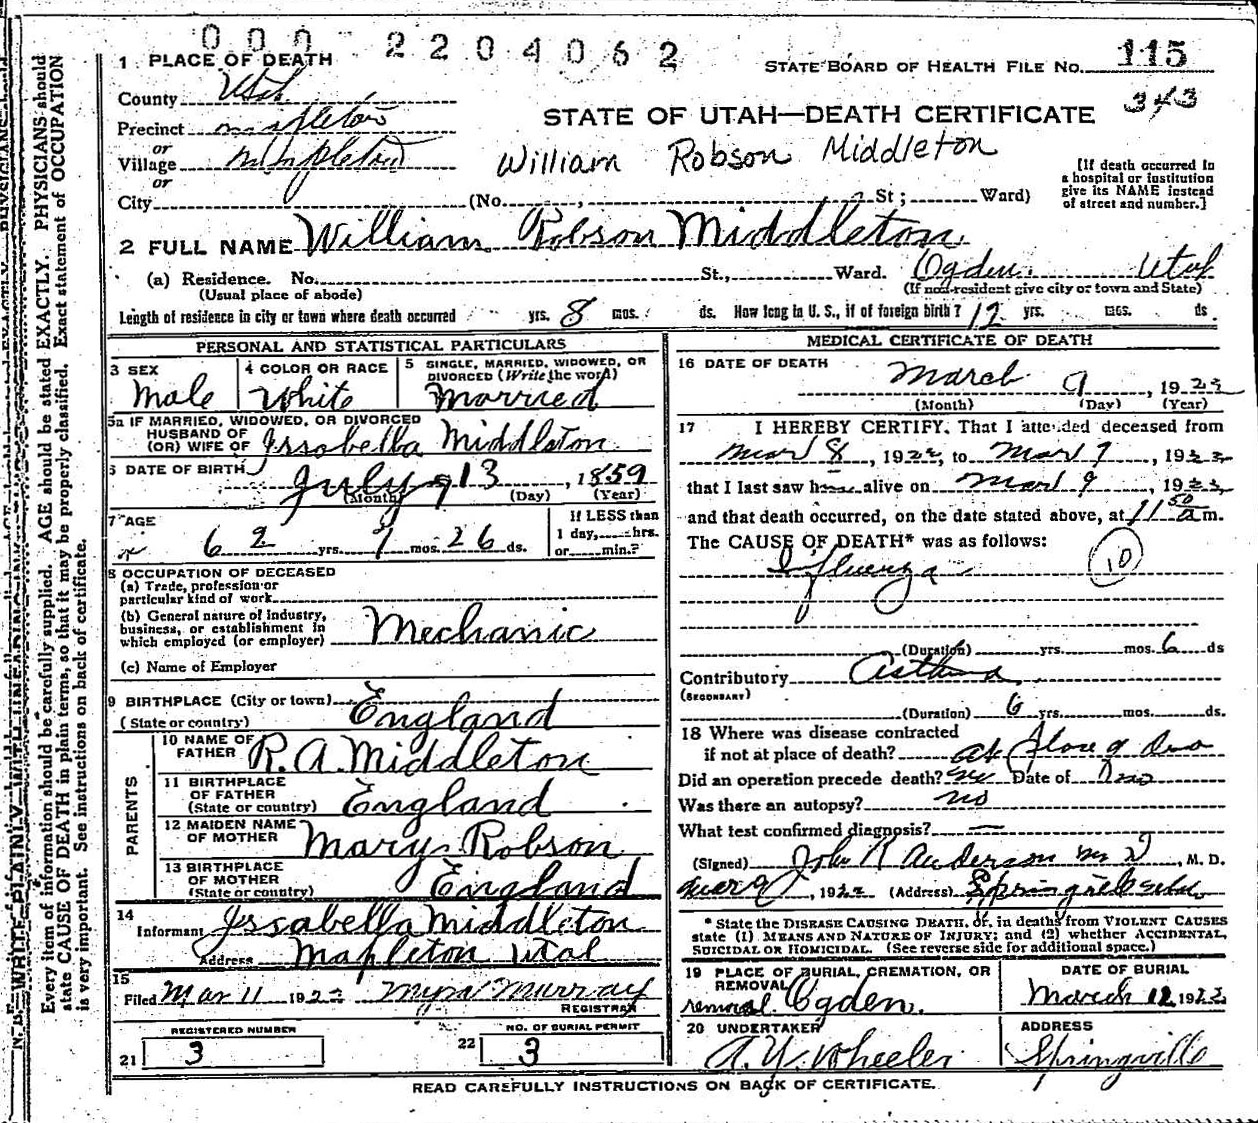 000 2204062
1 PLACE OF DEATH
STATE BOARD OF HEALTH FILE No. 115
343
County Utah
STATE OF UTAH—DEATH CERTIFICATE
Precinct Mapleton
or
Village Mapleton
William Robson Middleton
or
City (No. , St ; Ward)
[If death occurred in
a hospital or institution
give its NAME instead
of street and number.]
2 FULL NAME William Robson Middleton
(a) Residence. No. St., Ward. Ogden Utah
(Usual place of abode) (If non-resident give city or town and State)
Length of residence in city or town where death occurred yrs. 8 mos. ds. How long in U. S., if of foreign birth? 12 yrs. mos. ds.
PERSONAL AND STATISTICAL PARTICULARS
3 SEX
Male
4 COLOR OR RACE
White
5 SINGLE, MARRIED, WIDOWED, OR
DIVORCED (Write the word)
Married
5a IF MARRIED, WIDOWED, OR DIVORCED
HUSBAND OF
(OR) WIFE OF Issabella Middleton
6 DATE OF BIRTH July 13, 1859
(Month) (Day) (Year)
7 AGE
62 yrs. 7 mos. 26 ds.
If LESS than
1 day, hrs.
or min.?
8 OCCUPATION OF DECEASED
(a) Trade, profession or
particular kind of work
(b) General nature of industry,
business, or establishment in
which employed (or employer) Mechanic
(c) Name of Employer
9 BIRTHPLACE (City or town)
(State or country) England
PARENTS
10 NAME OF
FATHER R. A. Middleton
11 BIRTHPLACE
OF FATHER
(State or country) England
12 MAIDEN NAME
OF MOTHER Mary Robson
13 BIRTHPLACE
OF MOTHER
(State or country) England
14
Informant Issabella Middleton
Address Mapleton Utah
15
Filed Mar 11 1922 Myra Murray
REGISTRAR
REGISTERED NUMBER
21 3
NO. OF BURIAL PERMIT
22 3
MEDICAL CERTIFICATE OF DEATH
16 DATE OF DEATH
March 9, 1922
(Month) (Day) (Year)
17 I HEREBY CERTIFY, That I attended deceased from
Mar 8, 1922, to Mar 9, 1922
that I last saw him alive on Mar 9, 1922,
and that death occurred, on the date stated above, at 11 50 a m.
The CAUSE OF DEATH* was as follows:
Influenza 10
(Duration) yrs. mos. 6 ds
Contributory Asthma
(SECONDARY)
(Duration) 6 yrs. mos. ds.
18 Where was disease contracted
if not at place of death? at place of
Did an operation precede death? no Date of
Was there an autopsy? no
What test confirmed diagnosis? —
(Signed) John R Anderson M D, M. D.
Mar 9, 1922 (Address) Springville Utah
* State the DISEASE CAUSING DEATH, or, in deaths from VIOLENT CAUSES
state (1) MEANS AND NATURE OF INJURY; and (2) whether ACCIDENTAL,
SUICIDAL OR HOMICIDAL. (See reverse side for additional space.)
19 PLACE OF BURIAL, CREMATION, OR
REMOVAL
removal Ogden.
DATE OF BURIAL
March 12 1922
20 UNDERTAKER
A. Y. Wheeler
ADDRESS
Springville
READ CAREFULLY INSTRUCTIONS ON BACK OF CERTIFICATE.
Every item of information should be carefully supplied. AGE should be stated EXACTLY. PHYSICIANS should
state CAUSE OF DEATH in plain terms, so that it may be properly classified. Exact statement of OCCUPATION
is very important. See instructions on back of certificate.